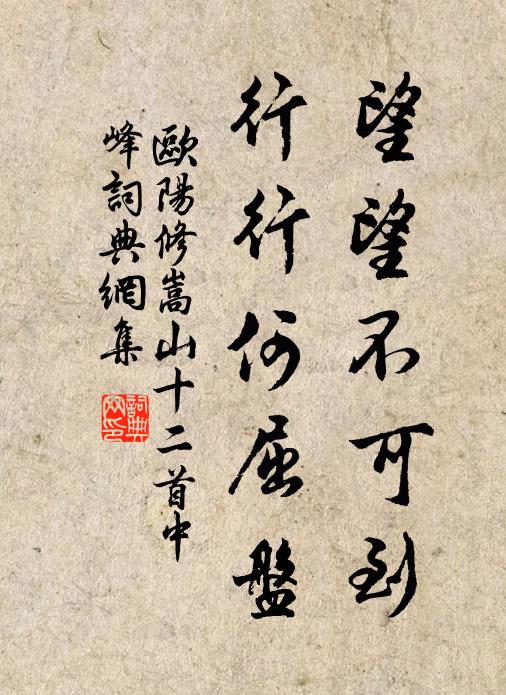 望望不可到
行行何屈盤
歐陽修嵩山十二首中
峰詞典網集
詞典網印